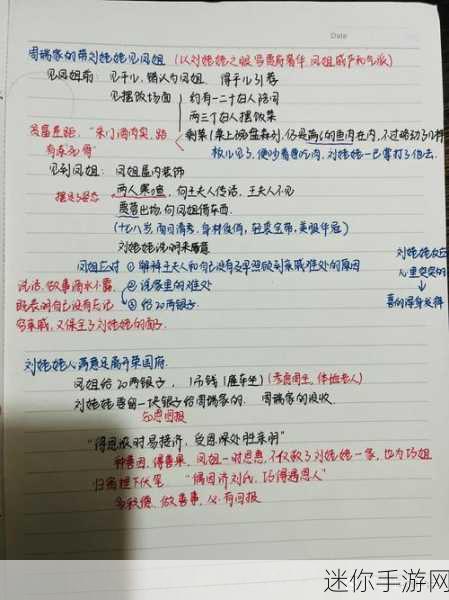 Date
周瑞家的带刘姥姥见凤姐 (以刘姥姥之眼,写贾府奢华,凤姐威严和气派)
见凤姐前: 见平儿,错认为凤姐 得平儿引荐
见摆饭场面 约有一二十妇人
两三个妇人摆饭菜
贫富差距,“朱门酒肉臭,路有冻死骨”
剩菜(桌上碗盘森列,仍是满满的鱼肉在内,不过略动了几样
板儿见了,便吵着要吃肉,刘姥姥一巴掌打了他去
见到凤姐: 凤姐屋内装饰
两人寒暄,向王夫人传话,王夫人不见
贾蓉出场,向凤姐借东西
(十七八岁,面目清秀,身材俊俏,轻裘宝带,美服华冠)
刘姥姥说明来意
凤姐应对 ① 解释王夫人和自己没有及早照顾到亲戚难处的原因
② 说家里的难处
③ 给20两银子
说话、做事滴水不漏,
既表明自己没有忘记
穷亲戚,又保全了刘姥姥的面子
刘姥姥
心里突突的
喜的浑身发痒
刘姥姥心满意足离开荣国府
凤姐给20两银子,1吊钱(雇车坐) (考虑周全,体恤老人)
刘姥姥要留一块银子给周瑞家的 周瑞家的没收
知恩图报
“得意浓时易接济,受恩深处胜亲朋”
种善因,得善果,凤姐一时恩惠,不仅救了刘姥姥一家,也为巧姐
归宿埋下伏笔 “偶因济刘氏,巧得遇恩人”
多积德,做善事,必有回报
迷你手游网